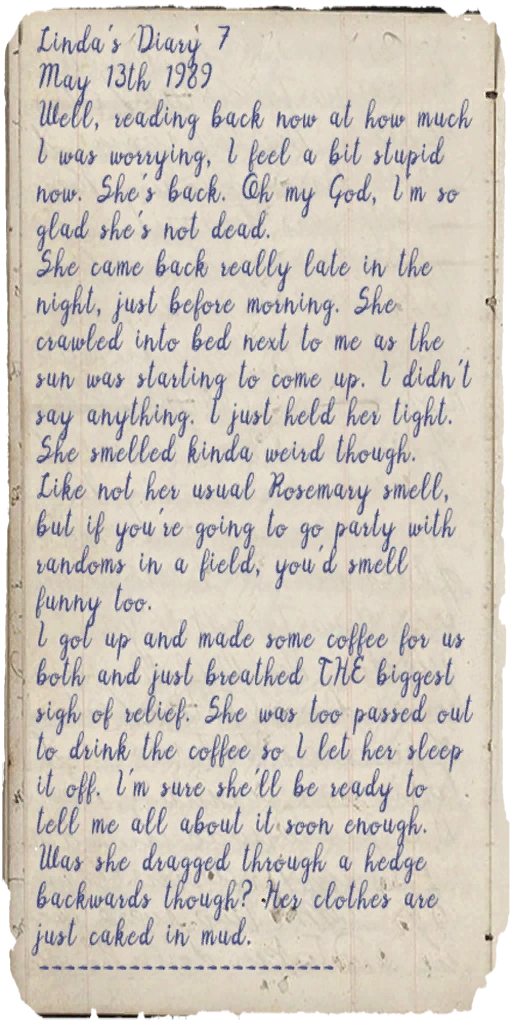 Linda's Diary 7
May 13th 1989
Well, reading back now at how much
I was worrying, I feel a bit stupid
now. She's back. Oh my God, I'm so
glad she's not dead.
She came back really late in the
night, just before morning. She
crawled into bed next to me as the
sun was starting to come up. I didn't
say anything. I just held her tight.
She smelled kinda weird though.
Like not her usual Rosemary smell,
but if you're going to go party with
randoms in a field, you'd smell
funny too.
I got up and made some coffee for us
both and just breathed THE biggest
sigh of relief. She was too passed out
to drink the coffee so I let her sleep
it off. I'm sure she'll be ready to
tell me all about it soon enough.
Was she dragged through a hedge
backwards though? Her clothes are
just caked in mud.
------------------------